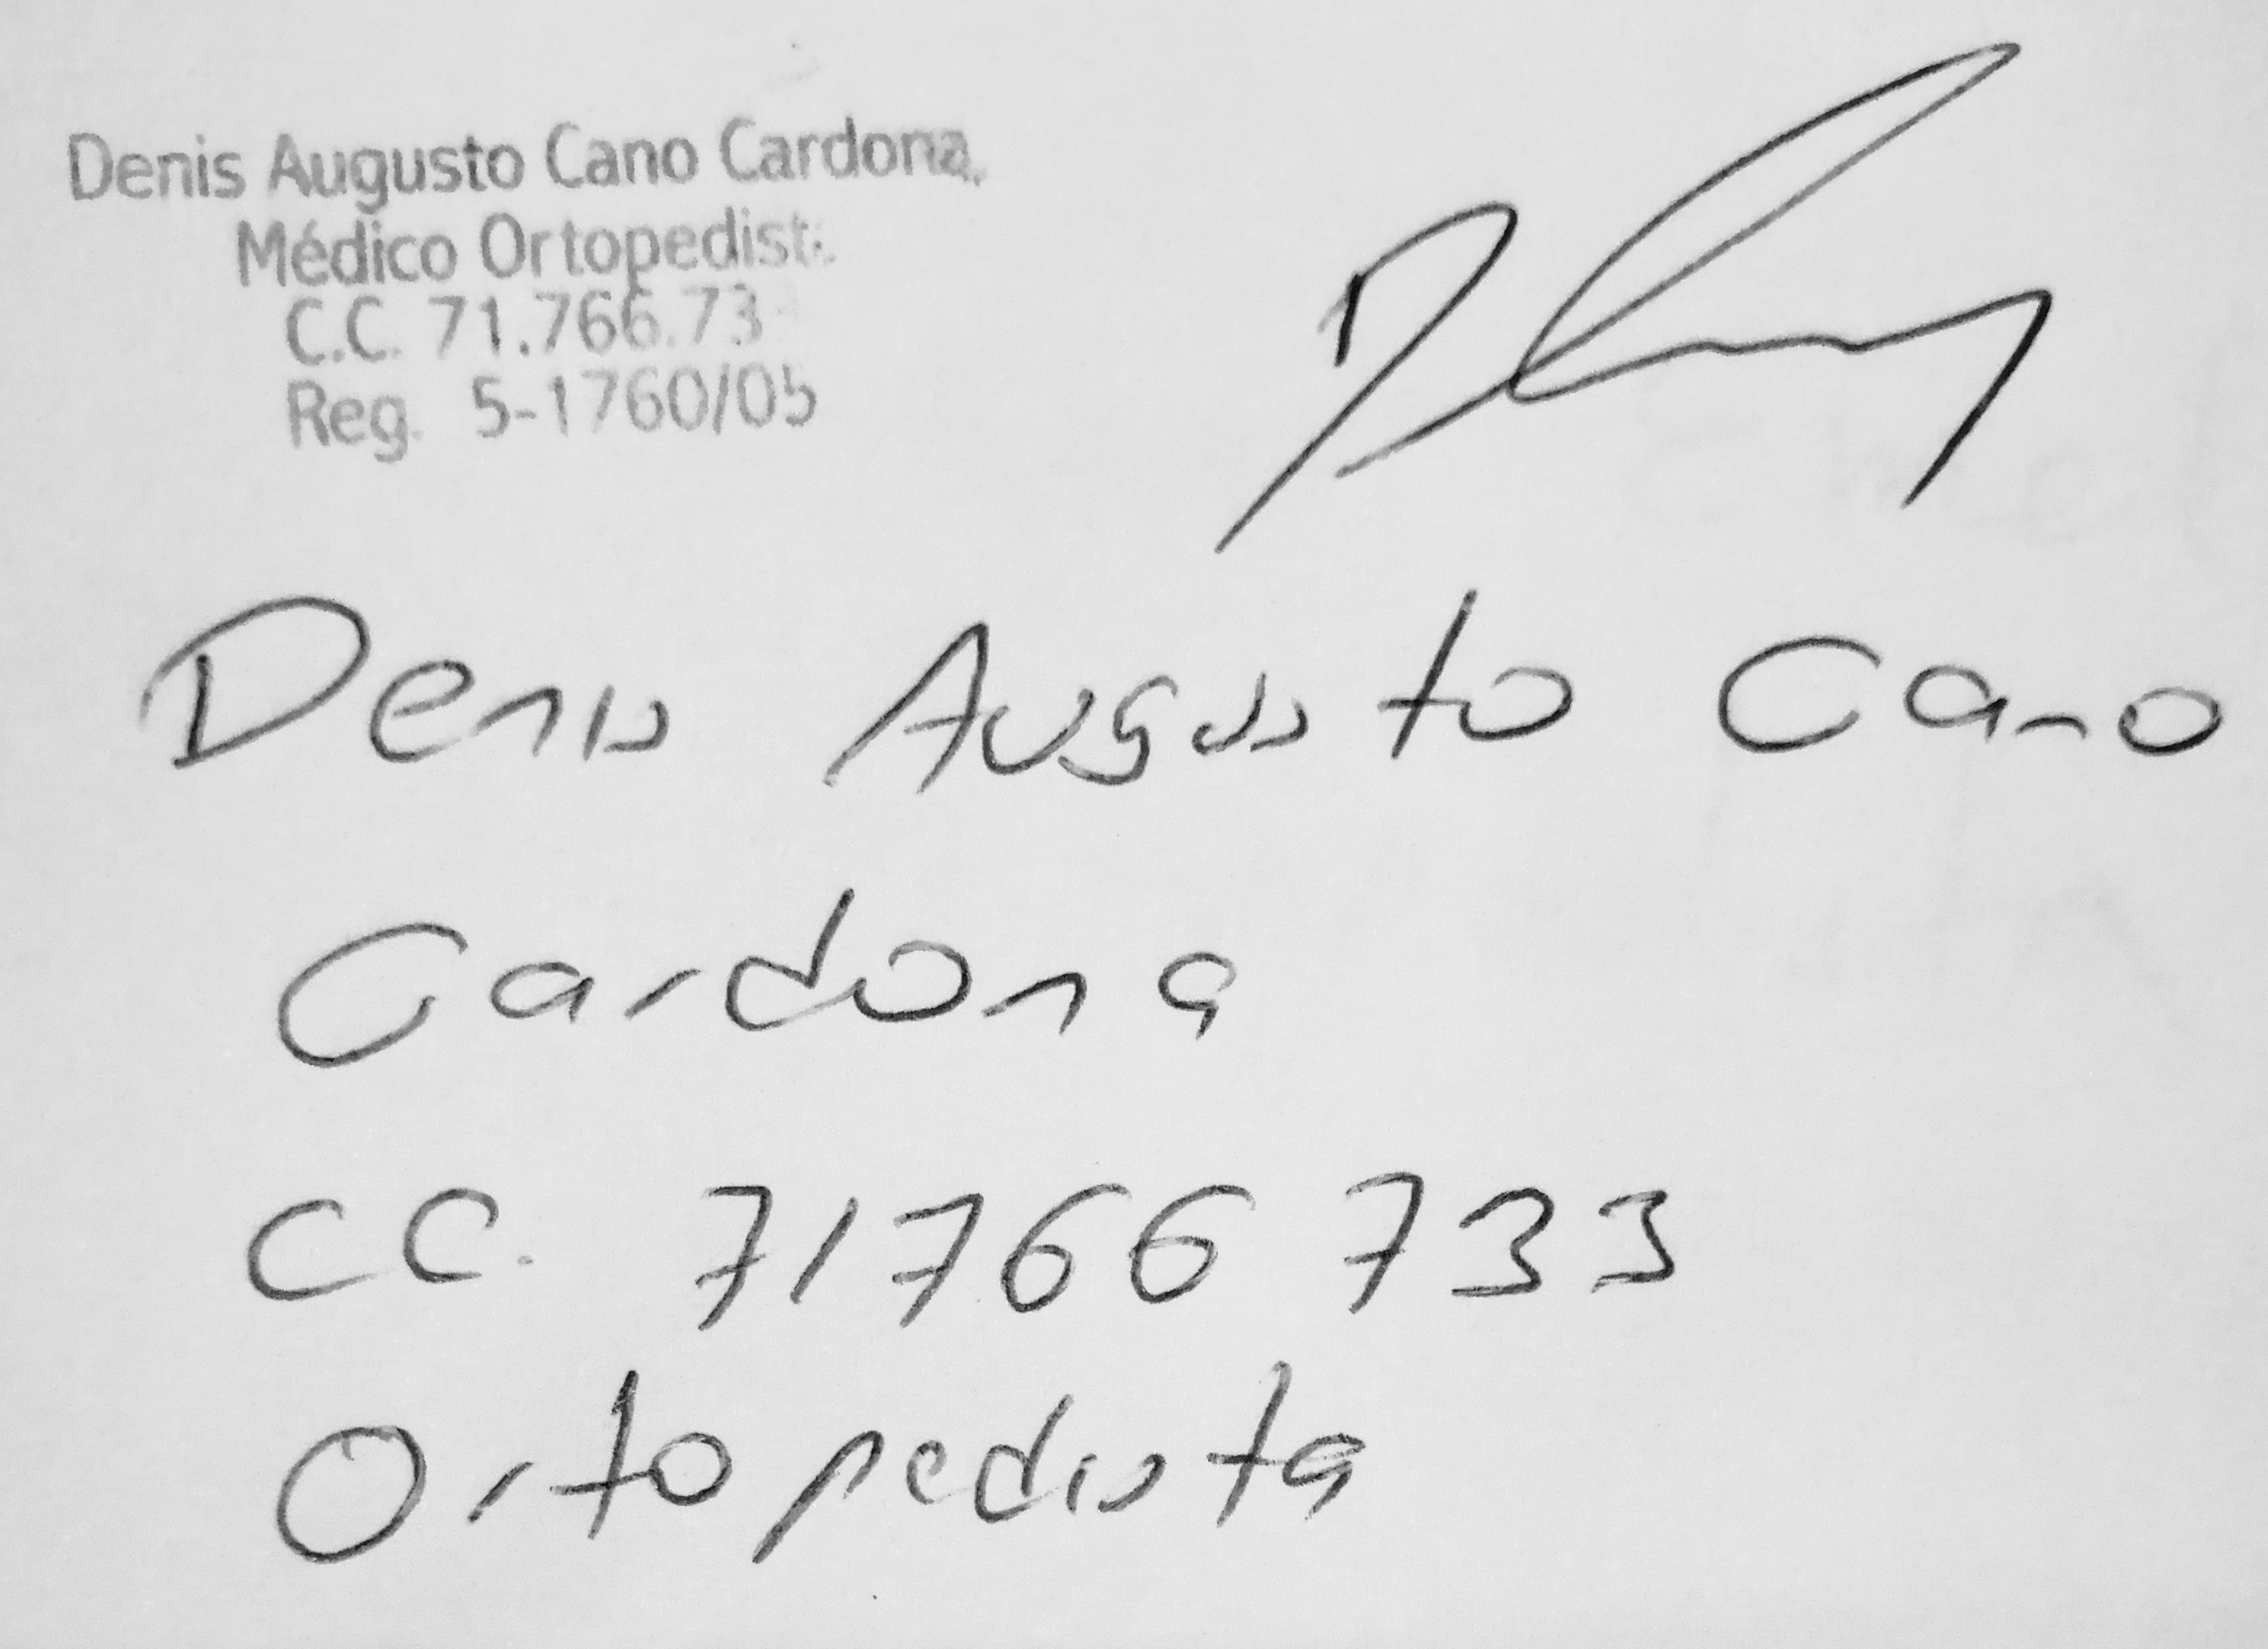 Denis Augusto Cano Cardona
Médico Ortopedist
C.C. 71.766.73
Reg. 5-1760/05
Denis Augusto Cano
Cardona
CC. 71766733
Ortopedista